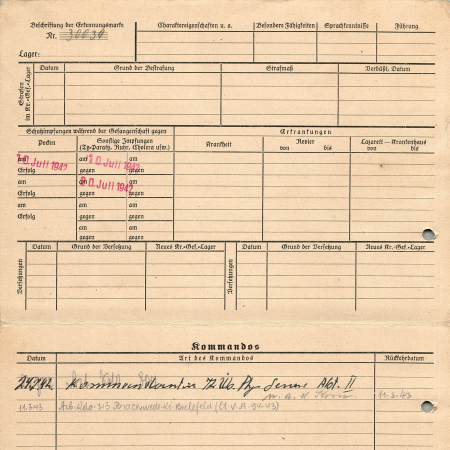 Beschriftung der Erkennungsmarke
Nr. 30039
Lager:
Charaktereigenschaften u. a.
Besondere Fähigkeiten
Sprachkenntnisse
Führung
Strafen im Kr.-Gef.-Lager
Datum
Grund der Bestrafung
Strafmaß
Verbüßt, Datum
Schutzimpfungen während der Gefangenschaft gegen
Erkrankungen
Pocken
Sonstige Impfungen
(Ty.-Paraty., Ruhr, Cholera usw.)
Krankheit
Revier
von bis
Lazarett — Krankenhaus
von bis
am am am
10. Juli 1942 10. Juli 1942
Erfolg gegen gegen
am am am
20. Juli 1942
Erfolg gegen gegen
am am am
Erfolg gegen gegen
am am
gegen gegen
Versetzungen
Datum
Grund der Versetzung
Neues Kr.-Gef.-Lager
Versetzungen
Datum
Grund der Versetzung
Neues Kr.-Gef.-Lager
Kommandos
Datum
Art des Kommandos
Rückkehrdatum
Kommandantur Senne Abt. II
11.3.43
11.3.43
Arb. Kdo. 213 Brackwede Kr. Bielefeld